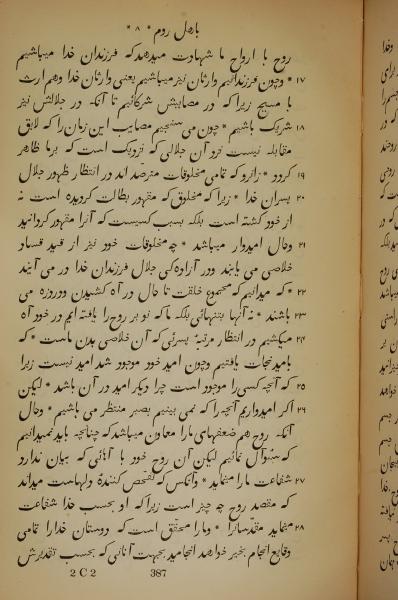 باهل روم * ۸ *
روح با ارواح ما شهادت میدهد که فرزندان خدا میباشیم
۱۷ * وچون فرزندانیم وارثان نیز میباشیم یعنی وارثان خدا وهم ارث
با مسیح زیرا که در مصایبش شرکائیم تا آنکه در جلالش نیز
۱۸ شریک باشیم * چون می سنجیم مصایب این زمان را که لایق
مقابله نیست نزد آن جلالی که نزدیک است که برما ظاهر
۱۹ گردد * زانرو که تمامی مخلوقات مترصد اند در انتظار ظهور جلال
۲۰ پسران خدا * زیرا که مخلوق که مقهور بطالت گردیده است نه
از خود گشته است بلکه بسبب کسیست که آنرا مقهور گردانید
۲۱ وحال امیدوار میباشد * چه مخلوقات خود نیز از قید فساد
خلاصی می یابند ودر آزادهٔ کی جلال فرزندان خدا در می آیند
۲۲ * که میدانیم که مجموع خلقت تا حال در آه کشیدن ودرد زه می
۲۳ باشند * نه آنها بتنهائی بلکه ما که نوبر روح را یافته ایم در خود آه
۲۴ میکشیم در انتظار مرتبهٔ پسری که آن خلاصی بدن ماست * که
بامید نجات یافتیم وچون امید خود موجود شد امید نیست زیرا
۲۵ که آنچه کسی را موجود است چرا دیگر امید در آن باشد * لیکن
۲۶ اگر امیدواریم آنچه را که نمی بینیم بصبر منتظر می باشیم * وحال
آنکه روح هم ضعفهای مارا معاون میباشد که چنانچه باید نمیدانیم
که سئوال نمائیم لیکن آن روح خود با آهائی که بیان ندارد
۲۷ شفاعت مارا مینماید * وآنکس که تفحص کنندهٔ دلهاست میداند
که مقصد روح چه چیز است زیرا که او بحسب خدا شفاعت
۲۸ مینماید مقدسانرا * ومارا محقق است که دوستان خدارا تمامی
وقایع انجام بخیر خواهد انجامید بجهت آنانی که بحسب تقدیرش
2 C 2
387